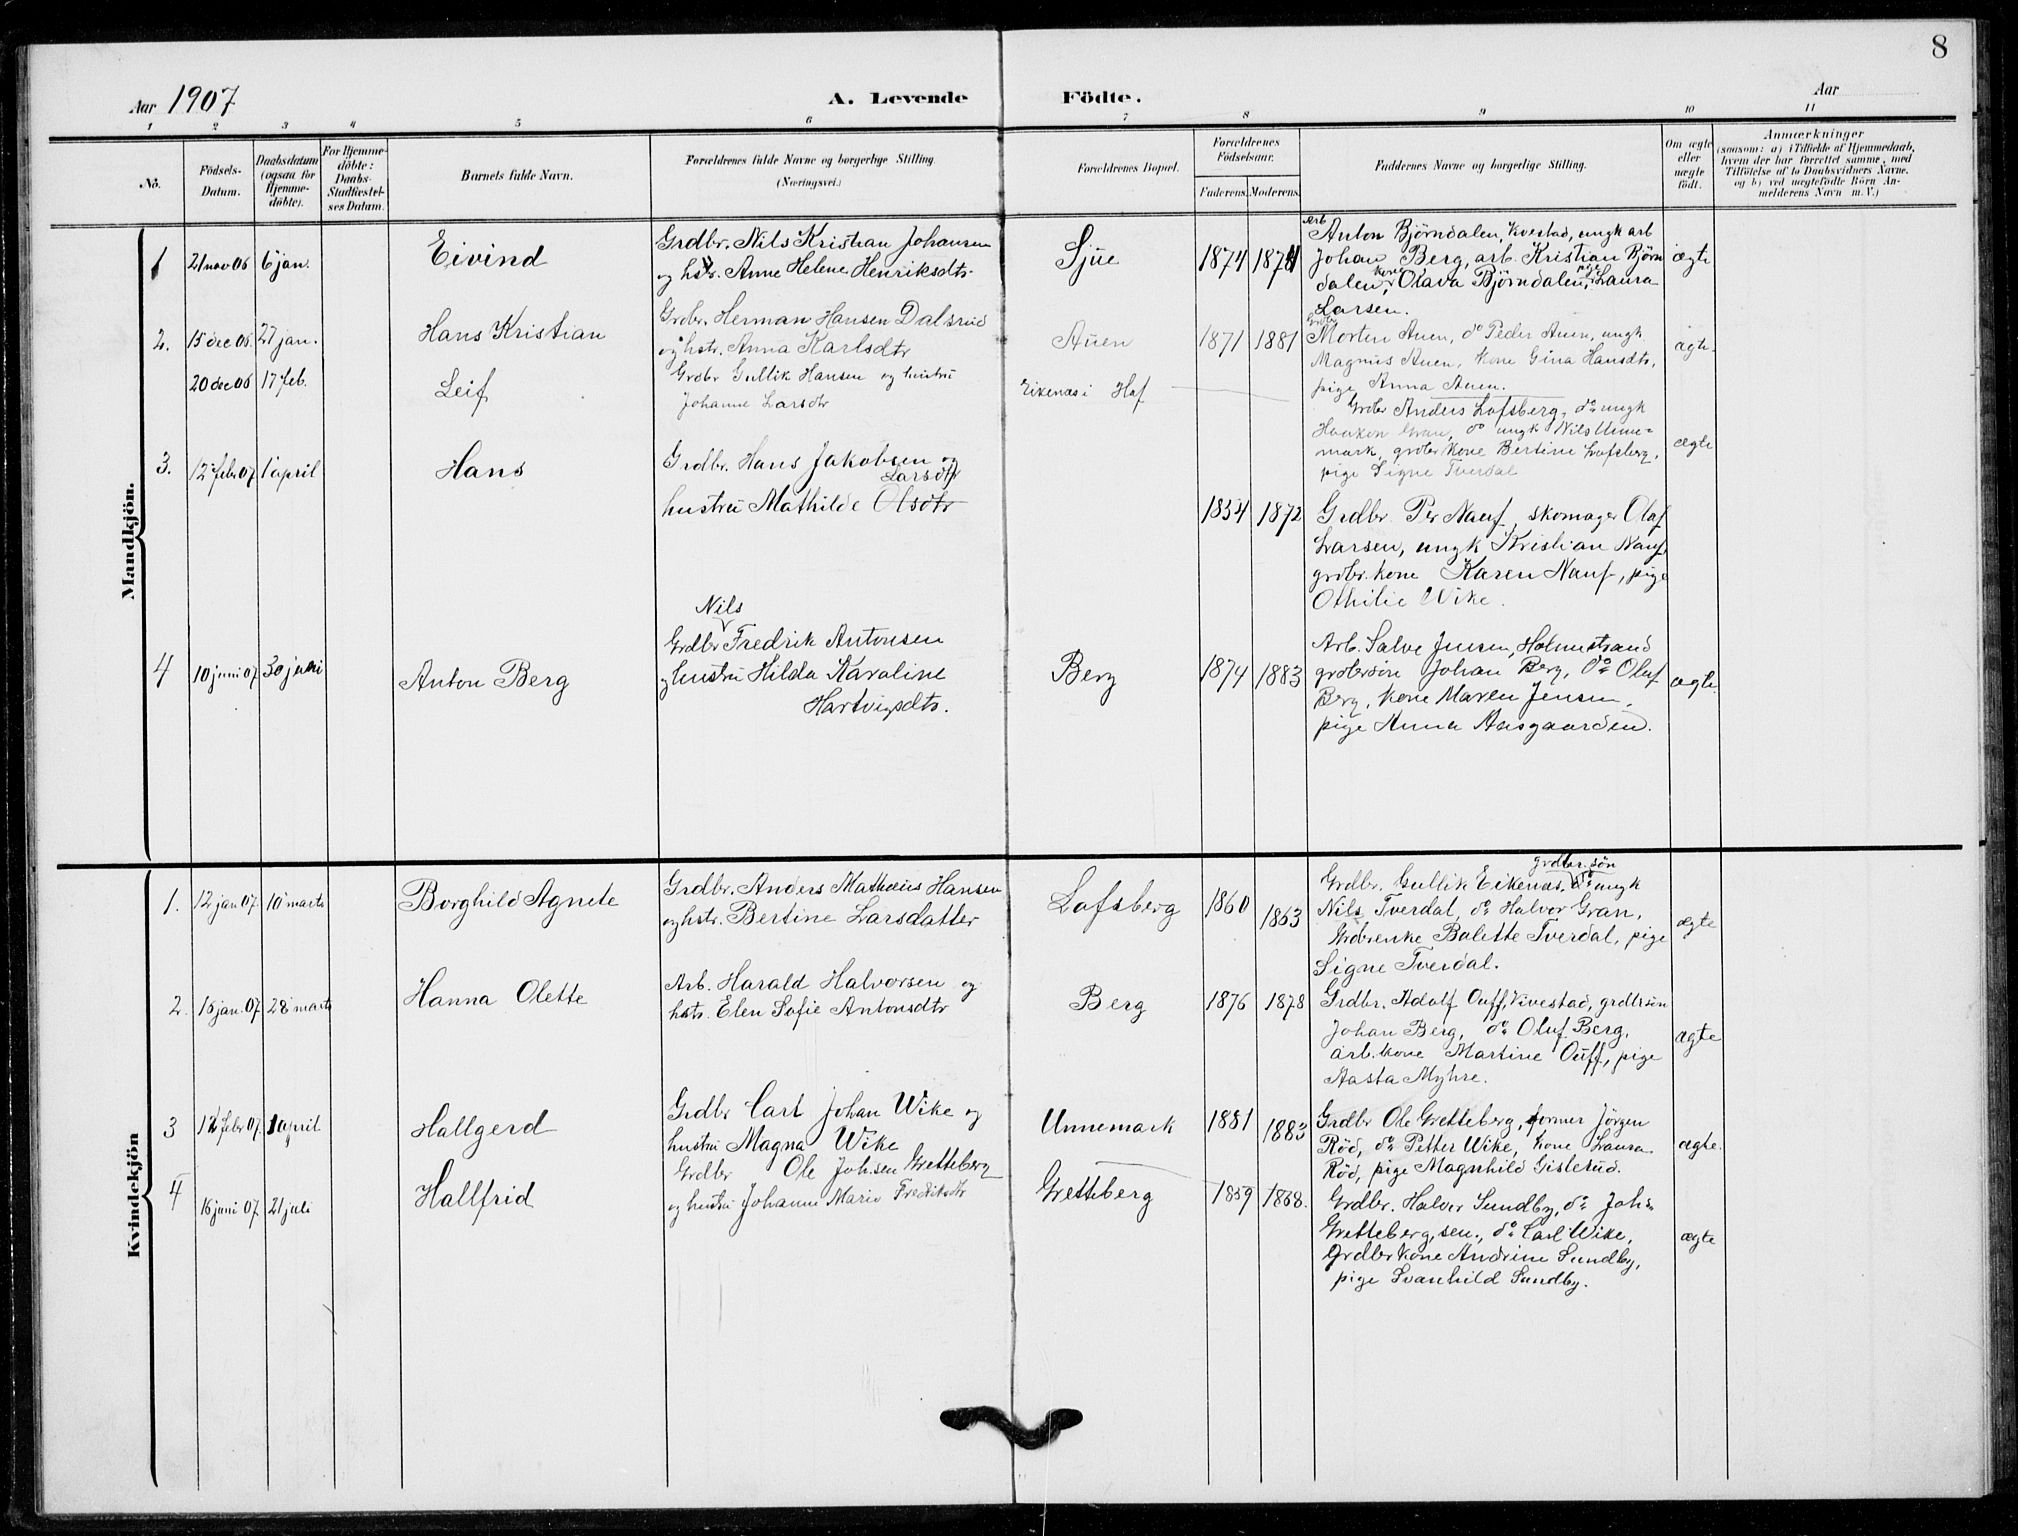 8
Aar 1907
A. Levende Födte.
Aar
1 2 3 4 5 6 7 8 9 10 11
No.
Födsels-Datum.
Daabsdatum (ogsaa for Hjemme-döbte).
For Hjemme-döbte: Daabs-Stadfæstel-ses Datum.
Barnets fulde Navn.
Forældrenes fulde Navne og borgerlige Stilling.
(Næringsvei.)
Forældrenes Bopæl.
Forældrenes Födselsaar.
Faderens. Moderens.
Faddernes Navne og borgerlige Stilling.
Om ægte eller uægte födt.
Anmærkninger
(saasom: a) i Tilfælde af Hjemmedaab,
hvem der har forrettet samme, med
Tilföielse af to Daabsvidners Navne,
og b) ved uægtefödte Börn An-
melderens Navn m. V.)
Mandkjön.
1 21 nov 06 6 jan. Eivind
Grdbr. Nils Kristian Johansen
og hstr. Anne Helene Henriksdtr.
Sjue 1874 1871
Arb
Anton Björndalen, Kvestad, ungk arb
Johan Berg, arb. Kristian Björn
dalen, kone Olava Björndalen, pige Laura
Larsen.
ægte
2. 15 dec 06. 27 jan. Hans Kristian
Grdbr. Herman Hansen Dalsrud
og hstr. Anna Karlsdtr
Auen 1871 1881
Grdbr
Morten Auen, do Peder Auen, ungk
Magnus Auen, kone Gina Hansdtr,
pige Anna Auen.
ægte.
20 dec 06 17 feb. Leif
Grdbr Gullik Hansen og hustru
Johanne Larsdtr
Eikenæs i Hof
Grdbr Anders Lofsberg, do ungk
Haaken Gran, do ungk Nils Unne-
mark, grdbr kone Bertine Lofsberg,
pige Signe Tverdal
ægte
3. 12 febr 07. 1 april Hans
Grdbr. Hans Jakobsen og
Larsdtr
hustru Mathilde Olsdtr
1854 1872
Grdbr Per Nauf, skomager Olaf
Larsen, ungk Kristian Nauf,
grdbr. kone Karen Nauf, pige
Othilie Wike.
4 10 juni 07. 30 juni Anton Berg
Nils
Grdbr Fredrik Antonsen
og hustru Hilda Karoline
Hartvigsdtr.
Berg 1874 1883
Arb. Salve Jensen, Holmestrand
grdbrsön Johan Berg, do Oluf
Berg, kone Maren Jensen,
pige Anna Aasgaarden.
ægte.
Kvindekjön
1. 12 jan 07. 10 marts Borghild Agnete
Grdbr. Anders Mathæus Hansen
og hstr. Bertine Larsdatter
Lofsberg 1860 1863
grdbr. sön
Grdbr. Gullik Eikenæs, do ungk
Nils Tverdal, do Halvor Gran,
Grdbrenke Balette Tverdal, pige
Signe Tverdal.
ægte
2. 15 jan. 07. 28 marts Hanna Olette
Arb. Harald Halvorsen og
hstr. Elen Sofie Antonsdtr
Berg 1876 1878
Grdbr. Adolf Ouff, Vivestad, grdbrsön
Johan Berg, do Oluf Berg,
arb. kone Martine Ouff, pige
Aasta Myhre.
ægte
3 febr 07. april. Hallgerd
Grdbr Carl Johan Wike og
hustru Magna Wike
Unnemark 1881 1883
Grdbr Ole Gretteberg, former Jörgen
Röd, do Petter Wike, kone Laura
Röd, pige Magnhild Gislerud.
ægte.
4 16 juni 07. 21 juli Hallfrid
Grdbr Ole Joh.sen Gretteberg
og hustru Johanne Marie Fredriksdtr
Gretteberg 1859 1868.
Grdbr. Halvor Sundby, do Johs
Gretteberg, sen., do Carl Wike,
Grdbrkone Andrine Sundby,
pige Svanhild Sundby.
ægte